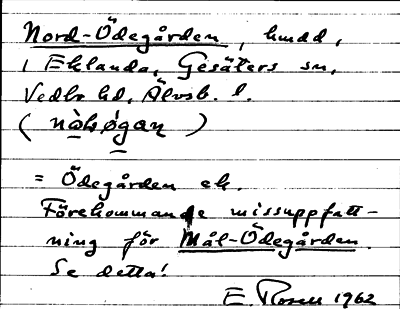 Nord-Ödegården, hmdd,
i Eklanda, Gesäters sn,
Vedbo hd, Älvsb. l.
(nòḷṣø̀gaṇ)
= Ödegården ek.
Förekommande missuppfatt-
ning för Mål-Ödegården.
Se detta!
E. Rosell 1962